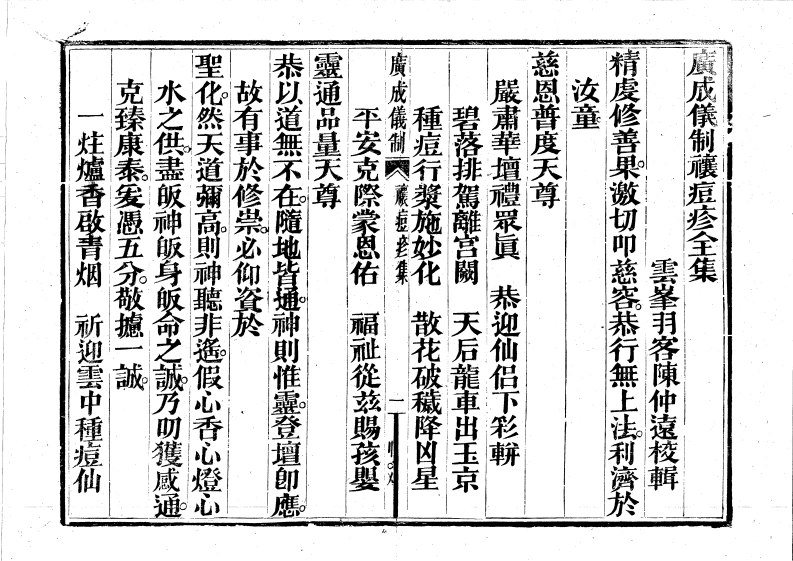 廣成儀制禳痘疹全集
雲峯羽客陳仲遠校輯
精虔修善果。激切叩慈容。恭行無上法。利濟於
汝童
慈恩普度天尊
嚴肅華壇禮眾眞　恭迎仙侶下彩軿
碧落排駕離宮闕　天后龍車出玉京
種痘行漿施妙化　散花破穢降凶星
廣成儀制　禳痘疹集　一
平安克際蒙恩佑　福祉從茲賜孩嬰
靈通品量天尊
恭以道無不在。隨地皆通。神則惟靈。登壇卽應。
故有事於修祟。必仰資於
聖化。然天道彌高。則神聽非遙。假心香心燈心
水之供。盡皈神皈身皈命之誠。乃叨獲感通。
克臻康泰。爰憑五分。敬攄一誠。
一炷爐香啟青烟　祈迎雲中種痘仙